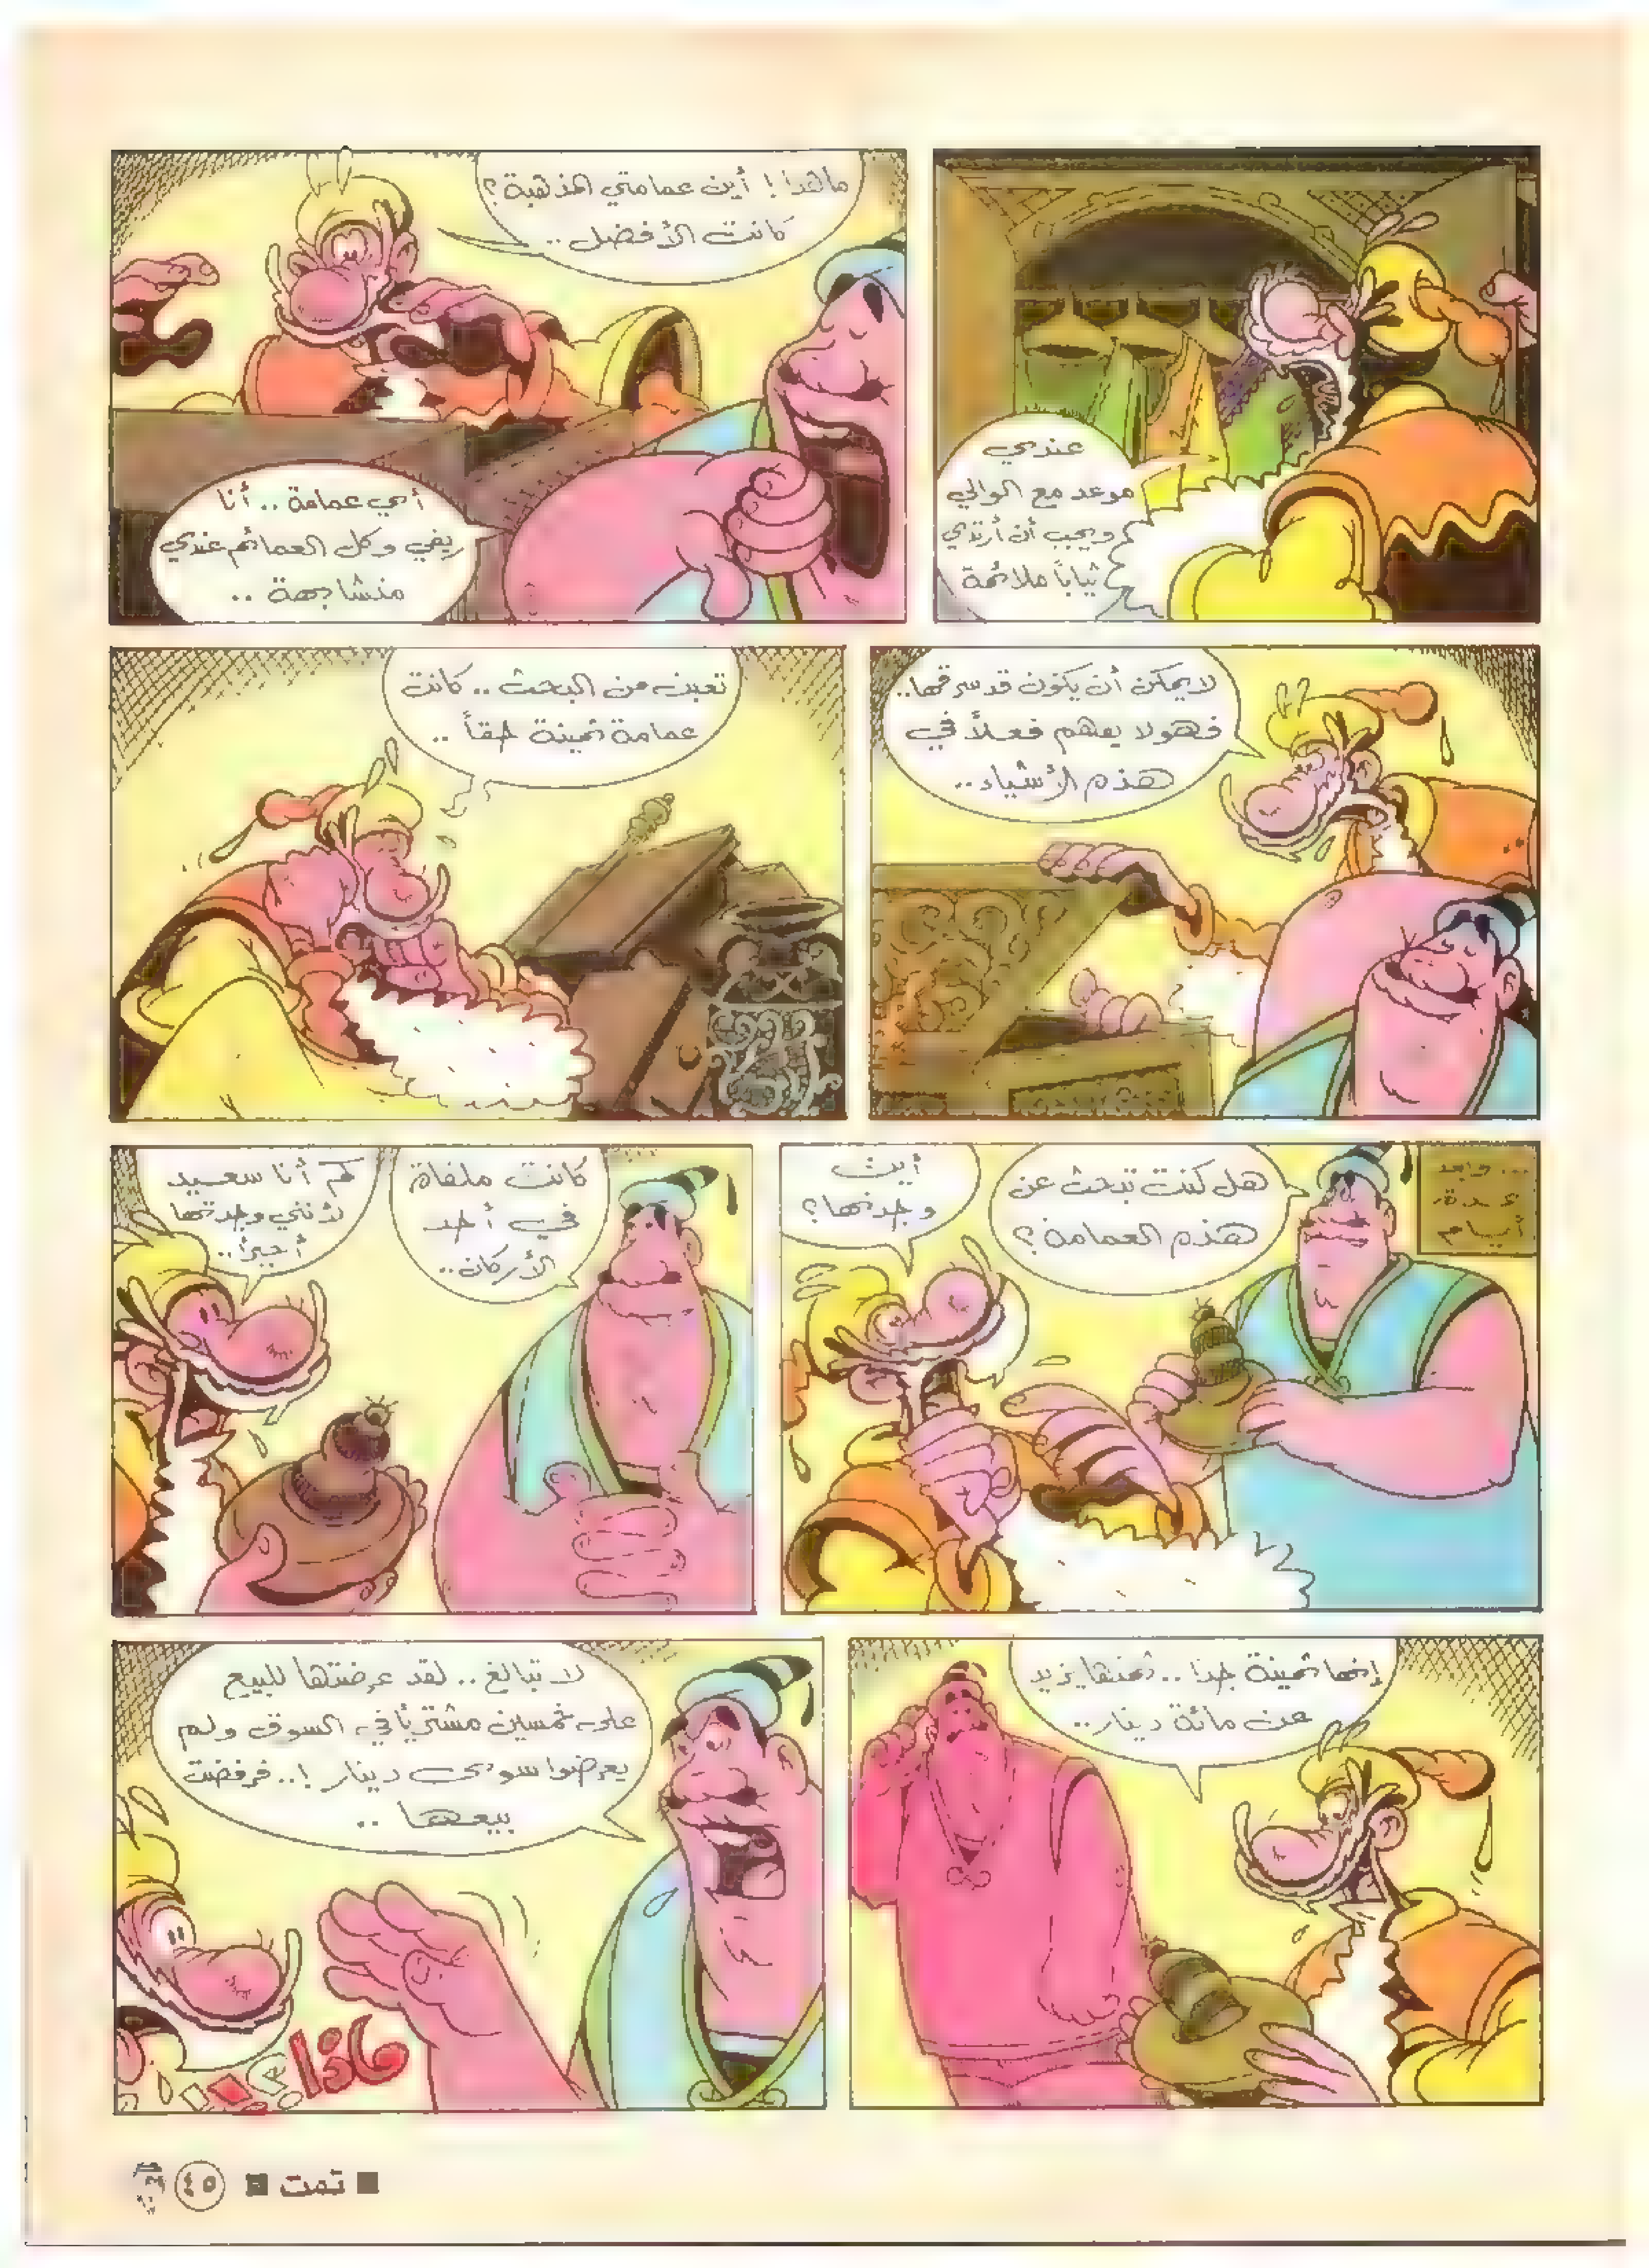 عندي
موعد مع الوالي
ويجب أن أرتدي
ثياباً ملائمة
ما هذا ! أين عمامتي المذهبة ؟
كانت الأفضل ..
أي عمامة .. أنا
ريفي وكل العمائم عندي
متشابهة ..
لا يمكن أن يكون قد سرقها ..
فهو لا يفهم فعلاً في
هذه الأشياء ..
تعبت من البحث .. كانت
عمامة ثمينة حقاً ..
... وبعد
عدة
أيام
هل كنت تبحث عن
هذه العمامة ؟
أين
وجدتها ؟
كانت ملقاة
في أحد
الأركان ..
كم أنا سعيد
لأنني وجدتها
أخيراً ..
إنها ثمينة جداً .. ثمنها يزيد
عن مائة دينار ..
لا تبالغ .. لقد عرضتها للبيع
على خمسين مشترياً في السوق ولم
يعرضوا سوى دينار ! .. فرفضت
بيعها ..
ماذا ؟!!
■ تمت ■ ٤٥